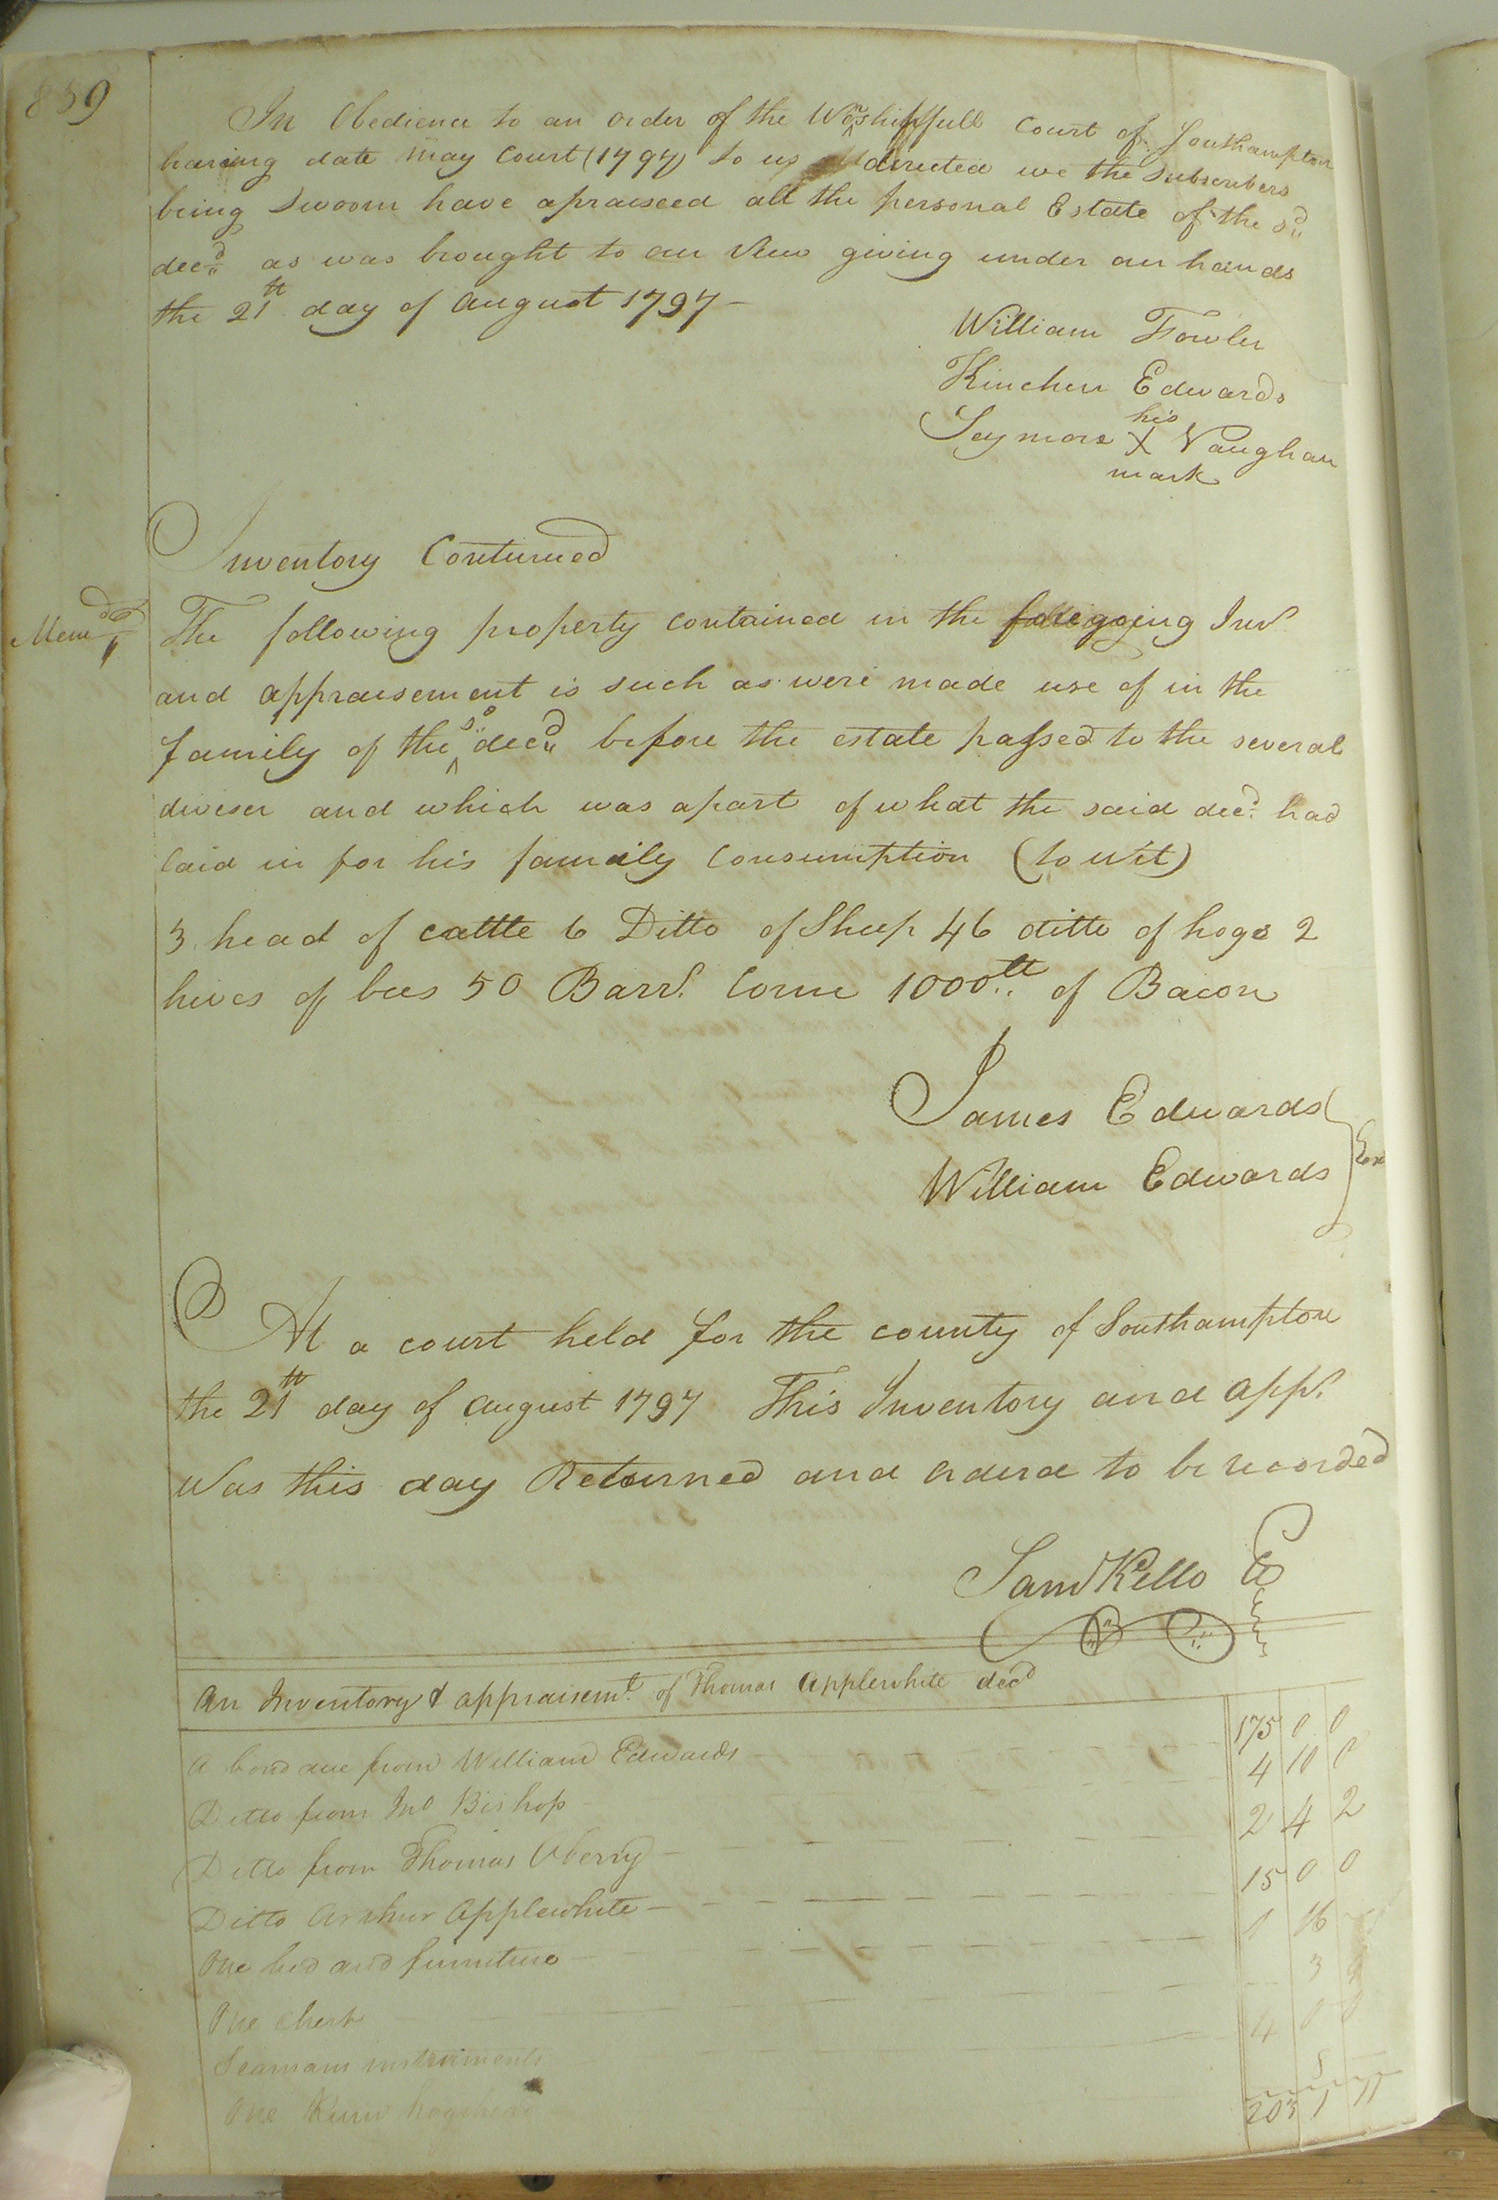 859
In Obedience to an order of the Worshipfull Court of Southampton
baring date May Court (1797) to us directed we the Subscribers
being Swoorn have apraiseed all the personal Estate of the sd
decd as was brought to our View giving under our hands
the 21th day of august 1797 —
William Fowler
Kinchen Edwards
his
Seymore X Vaughan
mark
Inventory Continued
Memd The following property contained in the foregoing Invt
and appraisement is such as were made use of in the
family of the sd decd before the estate passed to the several
diviser and which was apart of what the said decd had
laid in for his family Consumption (to wit)
3 head of cattle 6 Ditto of Sheep 46 ditto of hogs 2
hives of bees 50 Barrs. Corne 1000lt of Bacon
James Edwards
William Edwards } Exs
At a court held for the county of Southampton
the 21th day of august 1797 This Inventory and appt.
Was this day Returned and orderd to be recorded
Saml Kello CC
An Inventory & appraisemt. of Thomas Applewhite decd
A bond due from William Edwards — 175 0 0
Ditto from Jno Bishop — 4 10 0
Ditto from Thomas Uberry — 2 4 2
Ditto Arthur Applewhite — 15 0 0
One bed and furniture — 1 16
One chest — 3 9
Seamans instruments 4 0 0
One Rum hogshead 8
203 1 11